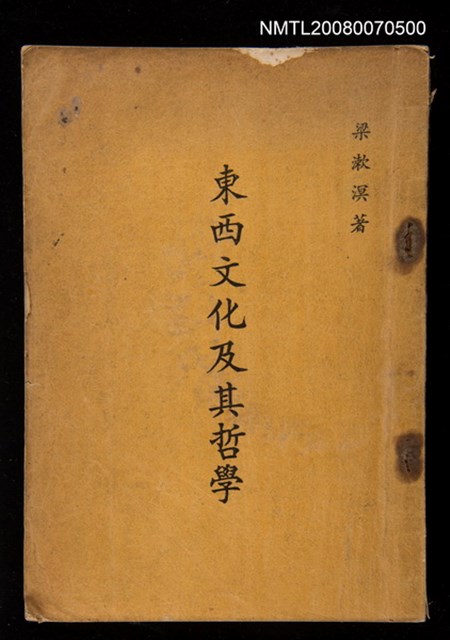 NMTL20080070500
梁漱溟著
東西文化及其哲學